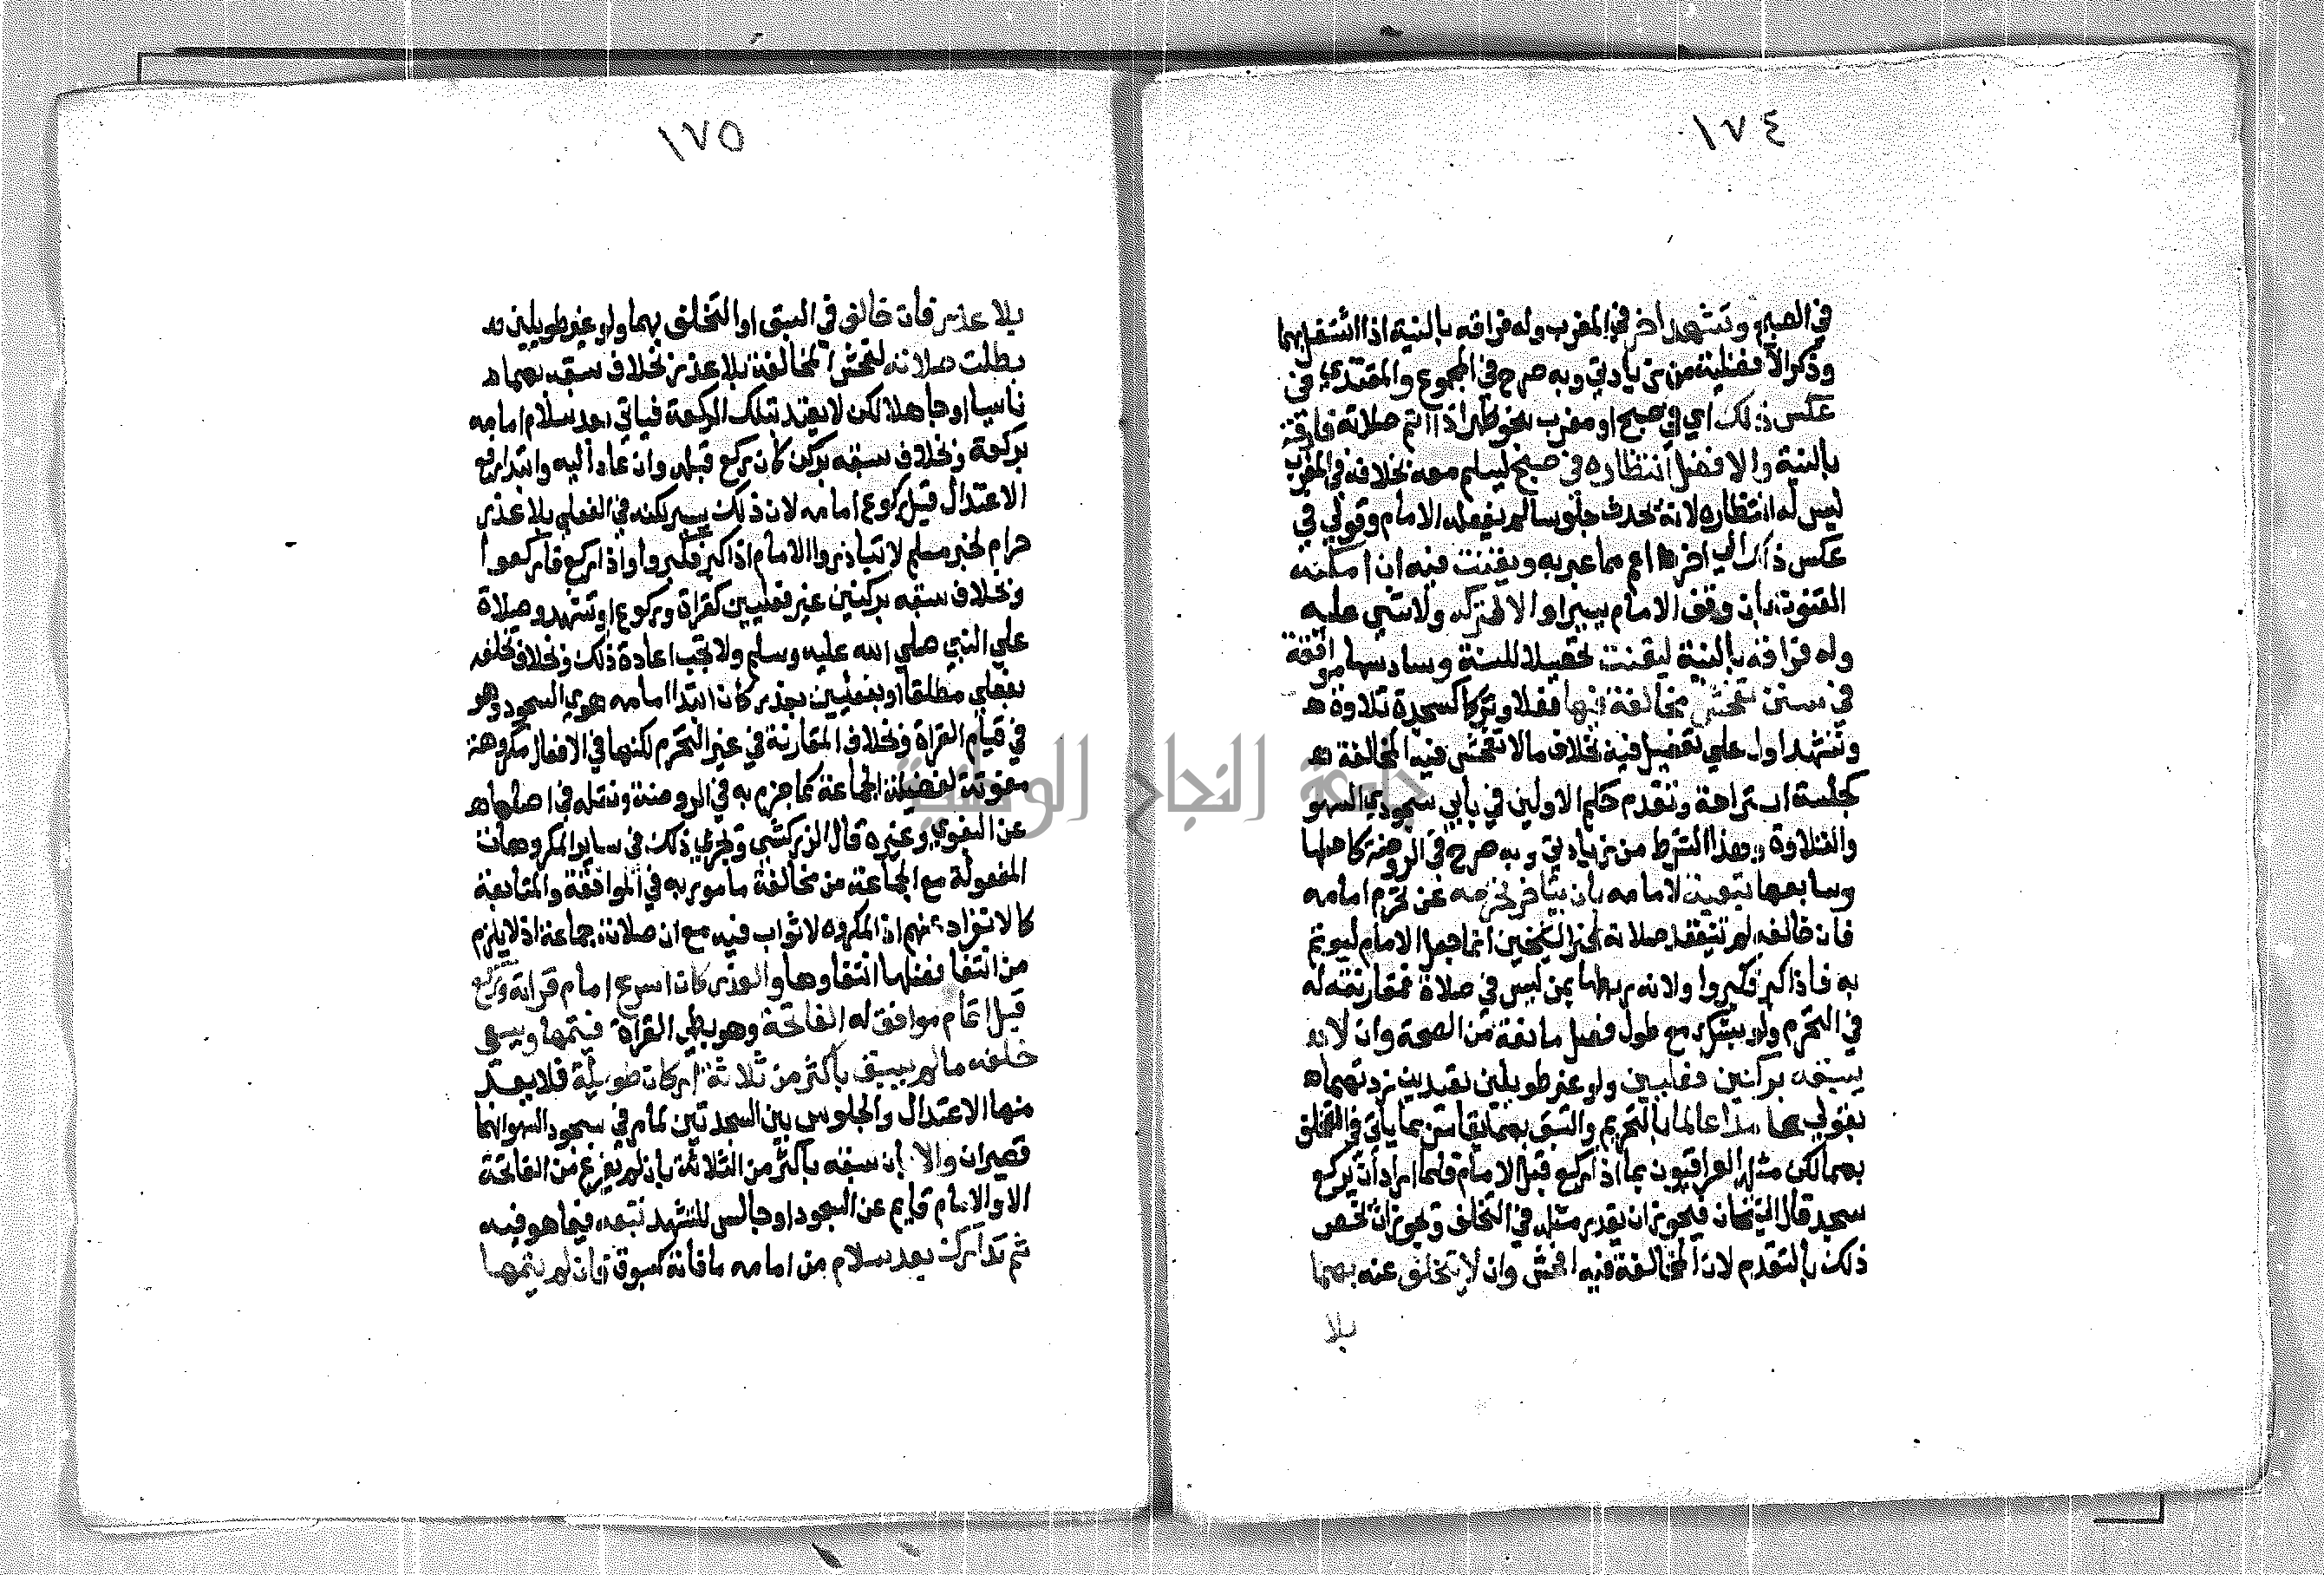 ١٧٤
في الصبح وتشهد اخر في المغرب وله فراقه بالنية اذا اشتغل بهما
وذكر الافضلية من زيادتي وبه صرح في المجموع والمقتدي في
عكس ذلك اي في صبح او مغرب بنحو ظهر اذا اتم صلاته فارقه
بالنية والافضل انتظاره في صبح ليسلم معه بخلافه في المغرب
ليس له انتظاره لانه يحدث جلوسا لم يفعله الامام وقولي في
عكس ذلك الي اخره اعم مما عبر به ويقنت فيه ان امكنه
القنوت بان وقف الامام يسيرا والا تركه ولا شي عليه
وله فراقه بالنية ليقنت تحصيلا للسنة وسادسها موافقة
في سنن تفحش مخالفة فيها فعلا وتركا كسجدة تلاوة
وتشهد اول علي تفصيل فيه بخلاف ما لا تفحش فيه المخالفة
كجلسة استراحة وتقدم حكم الاولين في بابي سجودي السهو
والتلاوة وهذا الشرط من زيادتي وبه صرح في الروضة كاصلها
وسابعها تبعية لامامه بان يتاخر تحرمه عن تحرم امامه
فان خالفه لم تنعقد صلاته لخبر الشيخين انما جعل الامام ليوتم
به فاذا كبر فكبروا ولانه ربطها بمن ليس في صلاة فمقارنته له
في التحرم ولو بشك مع طول فصل مانعة من الصحة وان لا
يسبقه بركنين فعليين ولو غير طويلين بقيدين زدتهما
بقولي عامدا عالما بالتحريم والسبق بهما يقاس بما ياتي في التخلف
بهما لكن مثله العراقيون بما اذا ركع قبل الامام فلما اراد ان يركع
سجد قال الشيخان فيجوز ان يقدر مثله في التخلف ويجوز ان يخص
ذلك بالتقدم لان المخالفة فيه افحش وان لا يتخلف عنه بهما
بلا
١٧٥
بلا عذر فان خالف في السبق او التخلف بهما ولو غير طويلين
بطلت صلاته لفحش المخالفة بلا عذر بخلاف سبقه بهما
ناسيا او جاهلا لكن لا يعتد بتلك الركعة فياتي بعد سلام امامه
بركعة وبخلاف سبقه بركن كان ركع قبله وان عاد اليه وابتدا رفع
الاعتدال قبل ركوع امامه لان ذلك يسير لكنه في الفعلي بلا عذر
حرام لخبر مسلم لا تبادروا الامام اذا كبر فكبروا واذا ركع فاركعوا
وبخلاف سبقه بركنين غير فعليين كقراة وركوع او تشهد وصلاة
علي النبي صلي الله عليه وسلم ولا تجب اعادة ذلك وبخلاف تخلفه
بفعلي مطلقا او بفعليين بعذر كان ابتدا امامه هوي السجود وهو
في قيام القراة وبخلاف المقارنة في غير التحرم لكنها في الافعال مكروهة
مفوتة لفضيلة الجماعة كما جزم به في الروضة ونقله في اصلها
عن البغوي وغيره قال الزركشي ويجري ذلك في ساير المكروهات
المفعولة مع الجماعة من مخالفة مامور به في الموافقة والمتابعة
كالانفراد عنهم اذ المكروه لا ثواب فيه مع ان صلاته جماعة اذ لا يلزم
من انتفا فضلها انتفاوها والعذر كان اسرع امام قراته وركع
قبل اتمام موافق له الفاتحة وهو بطي القراة فيتمها ويسعي
خلفه ما لم يسبق باكثر من ثلاثة اركان طويلة فلا يعد
منها الاعتدال والجلوس بين السجدتين لما مر في سجود السهو انهما
قصيران والا بان سبقه باكثر من الثلاثة بان لم يفرغ من الفاتحة
الا والامام قايم عن السجود او جالس للتشهد تبعه فيما هو فيه
ثم تدارك بعد سلام من امامه ما فاته كمسبوق فان لم يتمها
جامعة النجاح الوطنية